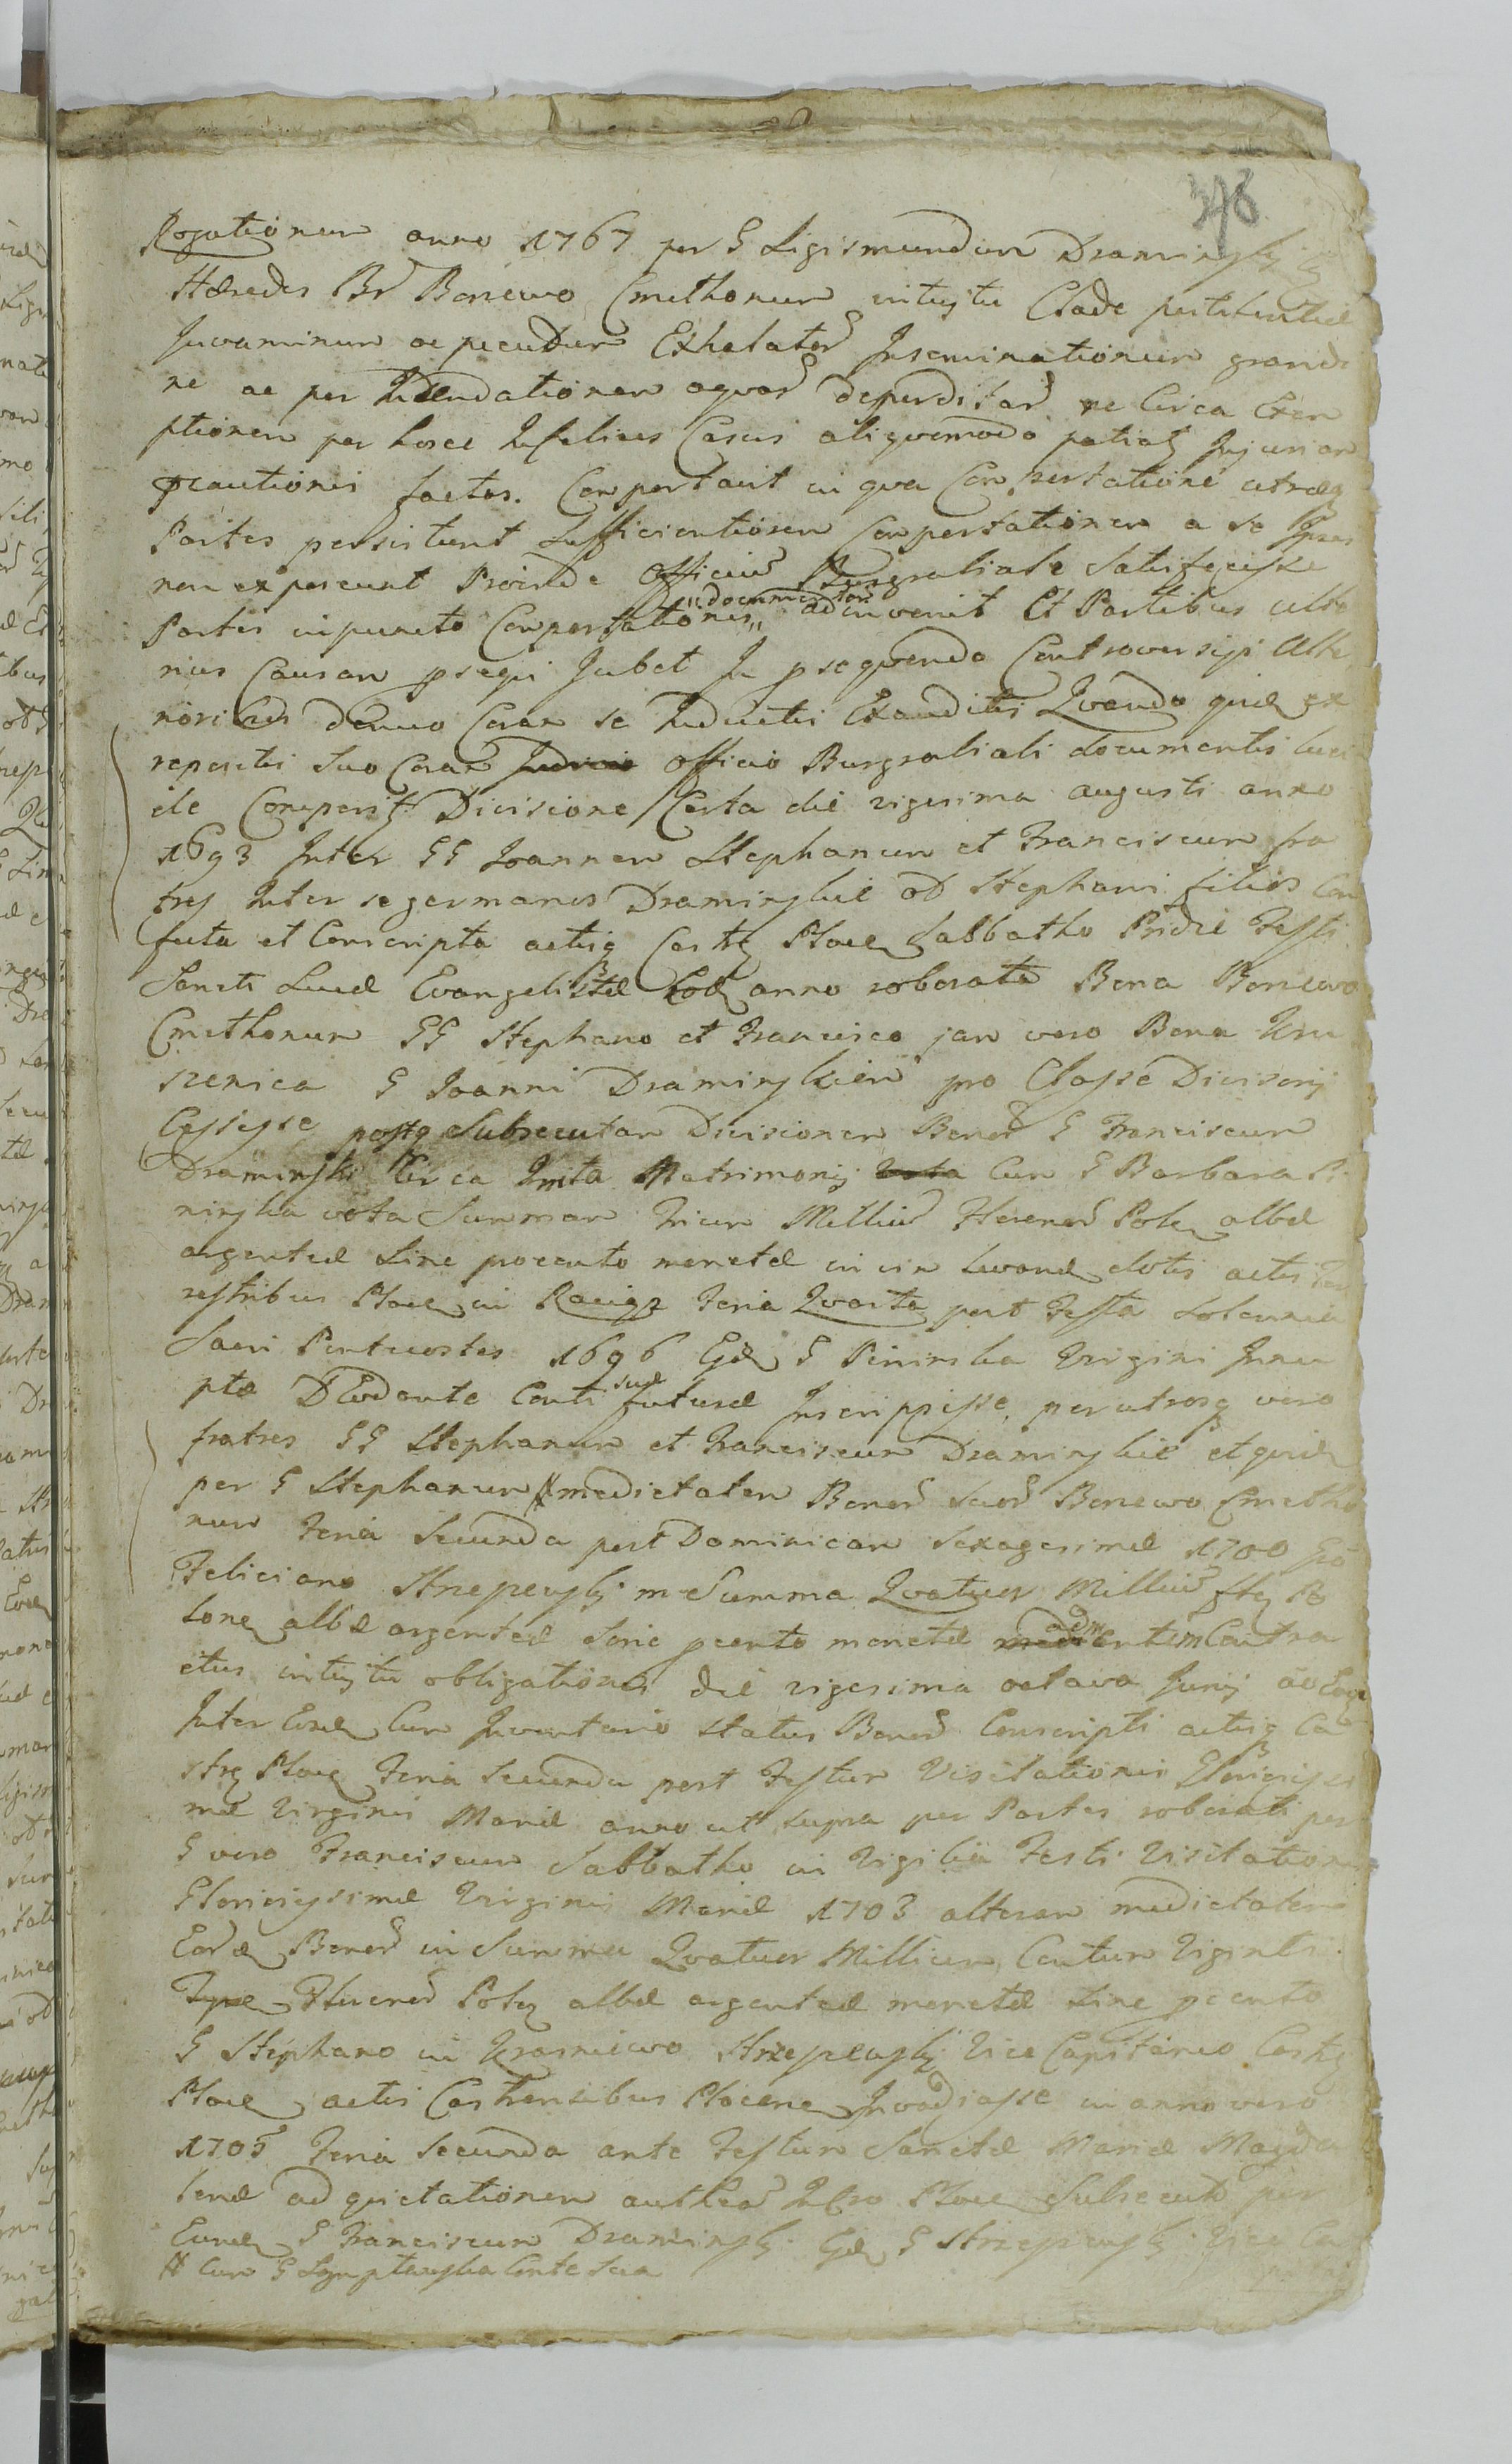 378
Rogationum anno 1767 per G Sigismundum Draminski
Hæredes Br Boniewo Cmethonum intuitu Clade pestilentiæ
Juvaminum ac pecudum Exhalator Inseminationum grandi
ne ac per Inundationem aquar deperditar ne Circa Exem
ptionem per hosce Infelices Casus aliquomodo patiatr Injuriam
cautionis factas. Comportavit in qua Comportatione utræq
Partes persistunt Sufficientiorem Comportationem a se
non exposcunt Proinde Officium Burgrabiale Satisfecisse
Partes in puncto Comportationis "documentor" adinvenit Et Partibus ulte
rius Causam prsequi Jubet In prsequenda Controversijs
denuo Coram se Inductis Exauditis Quando quid ex
repertis suo Coram Officio Burgrabiali documentis luci
de Comperitr Divisione Certa die vigesima augusti anno
1693 Inter GG Joannem Stephanum et Franciscum fra
tres Inter se germanos Draminskie od Stephani filios Con
fecta et Conscripta actisq Castr Plocen Sabbatho Pridie Festi
Sancti Lucæ Evangelistæ Eod anno roborata Bona Boniewo
Cmethonum GG Stephano et Francisco jam vero Bona Kru
szenica G Joanni Draminskiem pro Classe Divisorij
Cessisse postq Subsecutam Divisionem Bonor G Franciscum
Draminski Circa Inita Matrimonij Cum G Barbara Pi
ninska vota Summam Trium Millium Florenor Polon albæ
argenteæ Sine procento monetæ in vim dotis actis Ter
restribus Plocen in Raciąz Feria Quarta post Festa Solennia
Sacri Pentecostes 1696 Gd G Pininska Virgini Innu
ptæ D Conti suæ futuræ Inscrippisse, per utrosq vero
fratres GG Stephanum et Franciscum Draminskie et quid
per G Stephanum # medietatem Bonor Suor Boniewo Cmetho
num Feria Secunda post Dominicam Sexagesimæ 1700 Gso
Feliciano Strzepewski in Summa Quatuor Millium flor Po
lone albæ argenteæ Sine pcento monetæ adm Contra
ctus intuitu obligationis die vigesima octava Junij ao Eoq
Inter Eosd Cum Inventario Status Bonor Conscripti actisq Ca
str Plocen Feria Secunda post Festum Visitationis Gloriosissi
mæ Virginis Mariæ anno ut Supra per Partes roborati per
G vero Franciscum Sabbatho in Vigilia Festi Visitationis
Gloriosissimæ Virginis Mariæ 1703 alteram medietatem
Eord Bonor in Summa Quatuor Millium Centum Viginti
Florenor Polon albæ argenteæ monetæ Sine pcento
G Stephano in Krasniewo Strzepewski Vice Capitaneo Castr
Plocen actis Castrensibus Plocens Invadiasse in anno vero
1705 Feria Secunda ante Festum Sanctæ Mariæ Magda
lenæ ad quietationem author Plocen Subsecutor per
Eund G Franciscum Draminski Gd G Strzepewski Vice Ca
# Cum G Conte Sua